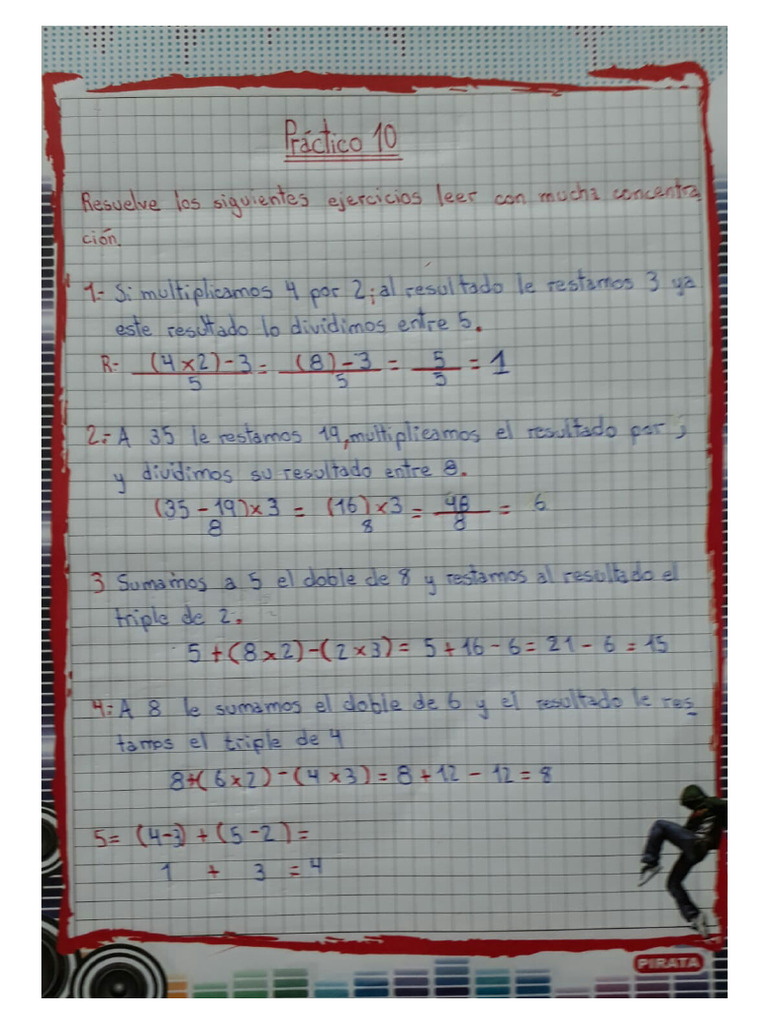 Práctico 10
Resuelve los siguientes ejercicios leer con mucha concentra
ción.
1.- Si multiplicamos 4 por 2; al resultado le restamos 3 ya
este resultado lo dividimos entre 5.
R.- (4x2)-3 = (8)-3 = 5 = 1
5 5 5
2.- A 35 le restamos 19, multiplicamos el resultado por ;
y dividimos su resultado entre 8.
(35-19)x3 = (16)x3 = 48 = 6
8 8 8
3 Sumamos a 5 el doble de 8 y restamos al resultado el
triple de 2.
5+(8x2)-(2x3) = 5+16-6 = 21-6 = 15
4.- A 8 le sumamos el doble de 6 y el resultado le res
tamos el triple de 4
8+(6x2)-(4x3) = 8+12-12 = 8
5= (4-3)+(5-2)=
1 + 3 = 4
PIRATA